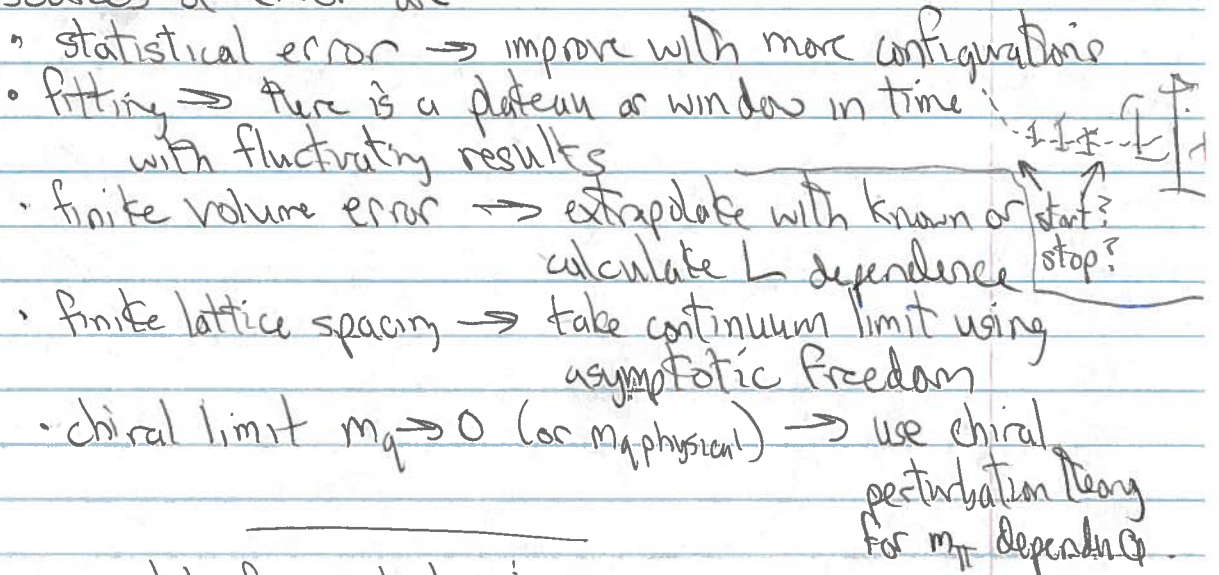 • statistical error → improve with more configurations
• fitting → there is a plateau or window in time
with fluctuating results
• finite volume error → extrapolate with known or
calculate L dependence
start?
stop?
• finite lattice spacing → take continuum limit using
asymptotic freedom
• chiral limit m_q → 0 (or m_q physical) → use chiral
perturbation theory
for m_π dependence.